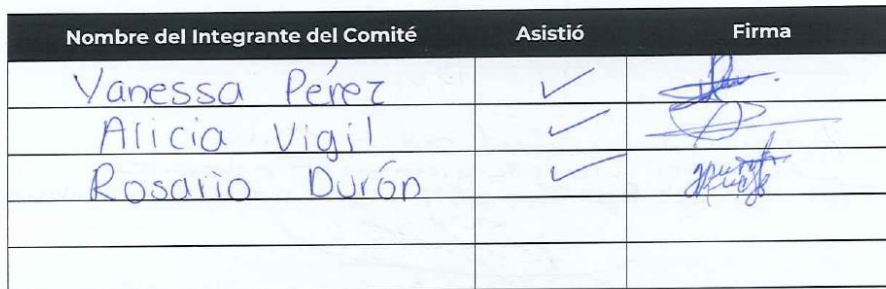 Nombre del Integrante del Comité Asistió Firma
Vanessa Pérez ✓
Alicia Vigil ✓
Rosario Durón ✓